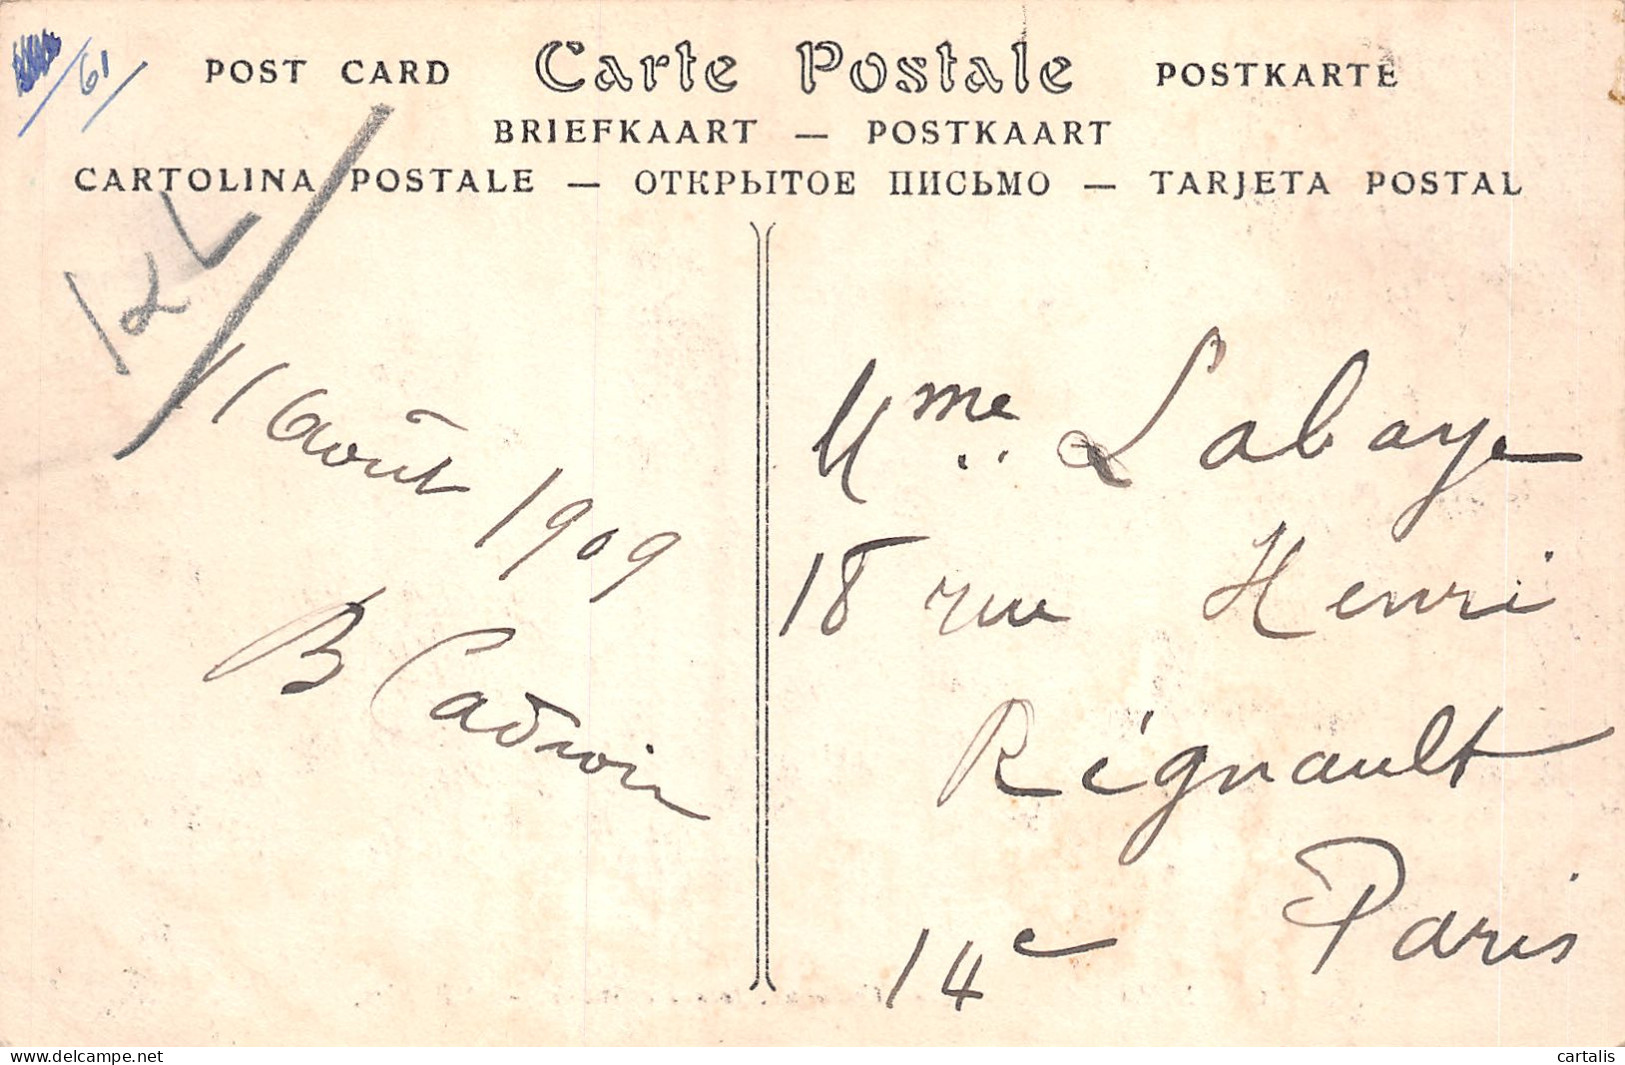 61/
POST CARD Carte Postale POSTKARTE
BRIEFKAART — POSTKAART
CARTOLINA POSTALE — ОТКРЫТОЕ ПИСЬМО — TARJETA POSTAL
11 Août 1909
B Cadroin
Mme Labaye
18 rue Henri
Régnault
14e Paris
www.delcampe.net
cartalis